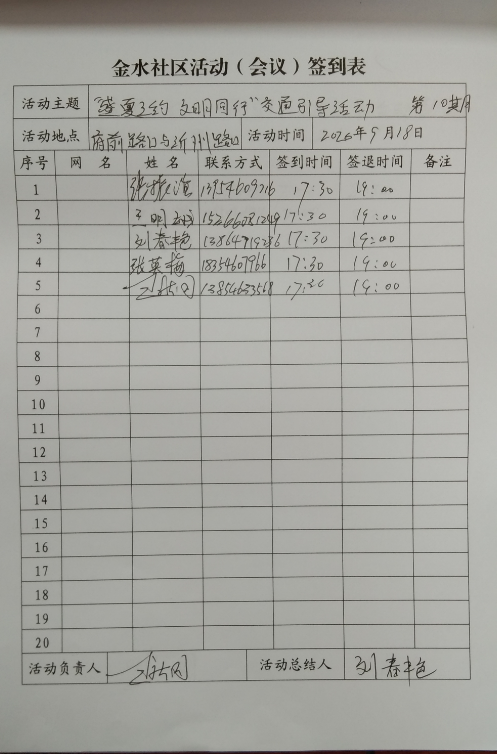 金水社区活动（会议）签到表
活动主题 "盛夏之约 文明同行"交通引导活动 第10期
活动地点 府前路口与沂州路口 活动时间 2026年9月18日
序号 网 名 姓 名 联系方式 签到时间 签退时间 备注
1 张振海 13954609216 17:30 19:00
2 王明 17:30 19:00
3 刘春艳 17:30 19:00
4 张英梅 18354607966 17:30 19:00
5 13854633568 17:30 19:00
6
7
8
9
10
11
12
13
14
15
16
17
18
19
20
活动负责人 活动总结人 刘春艳